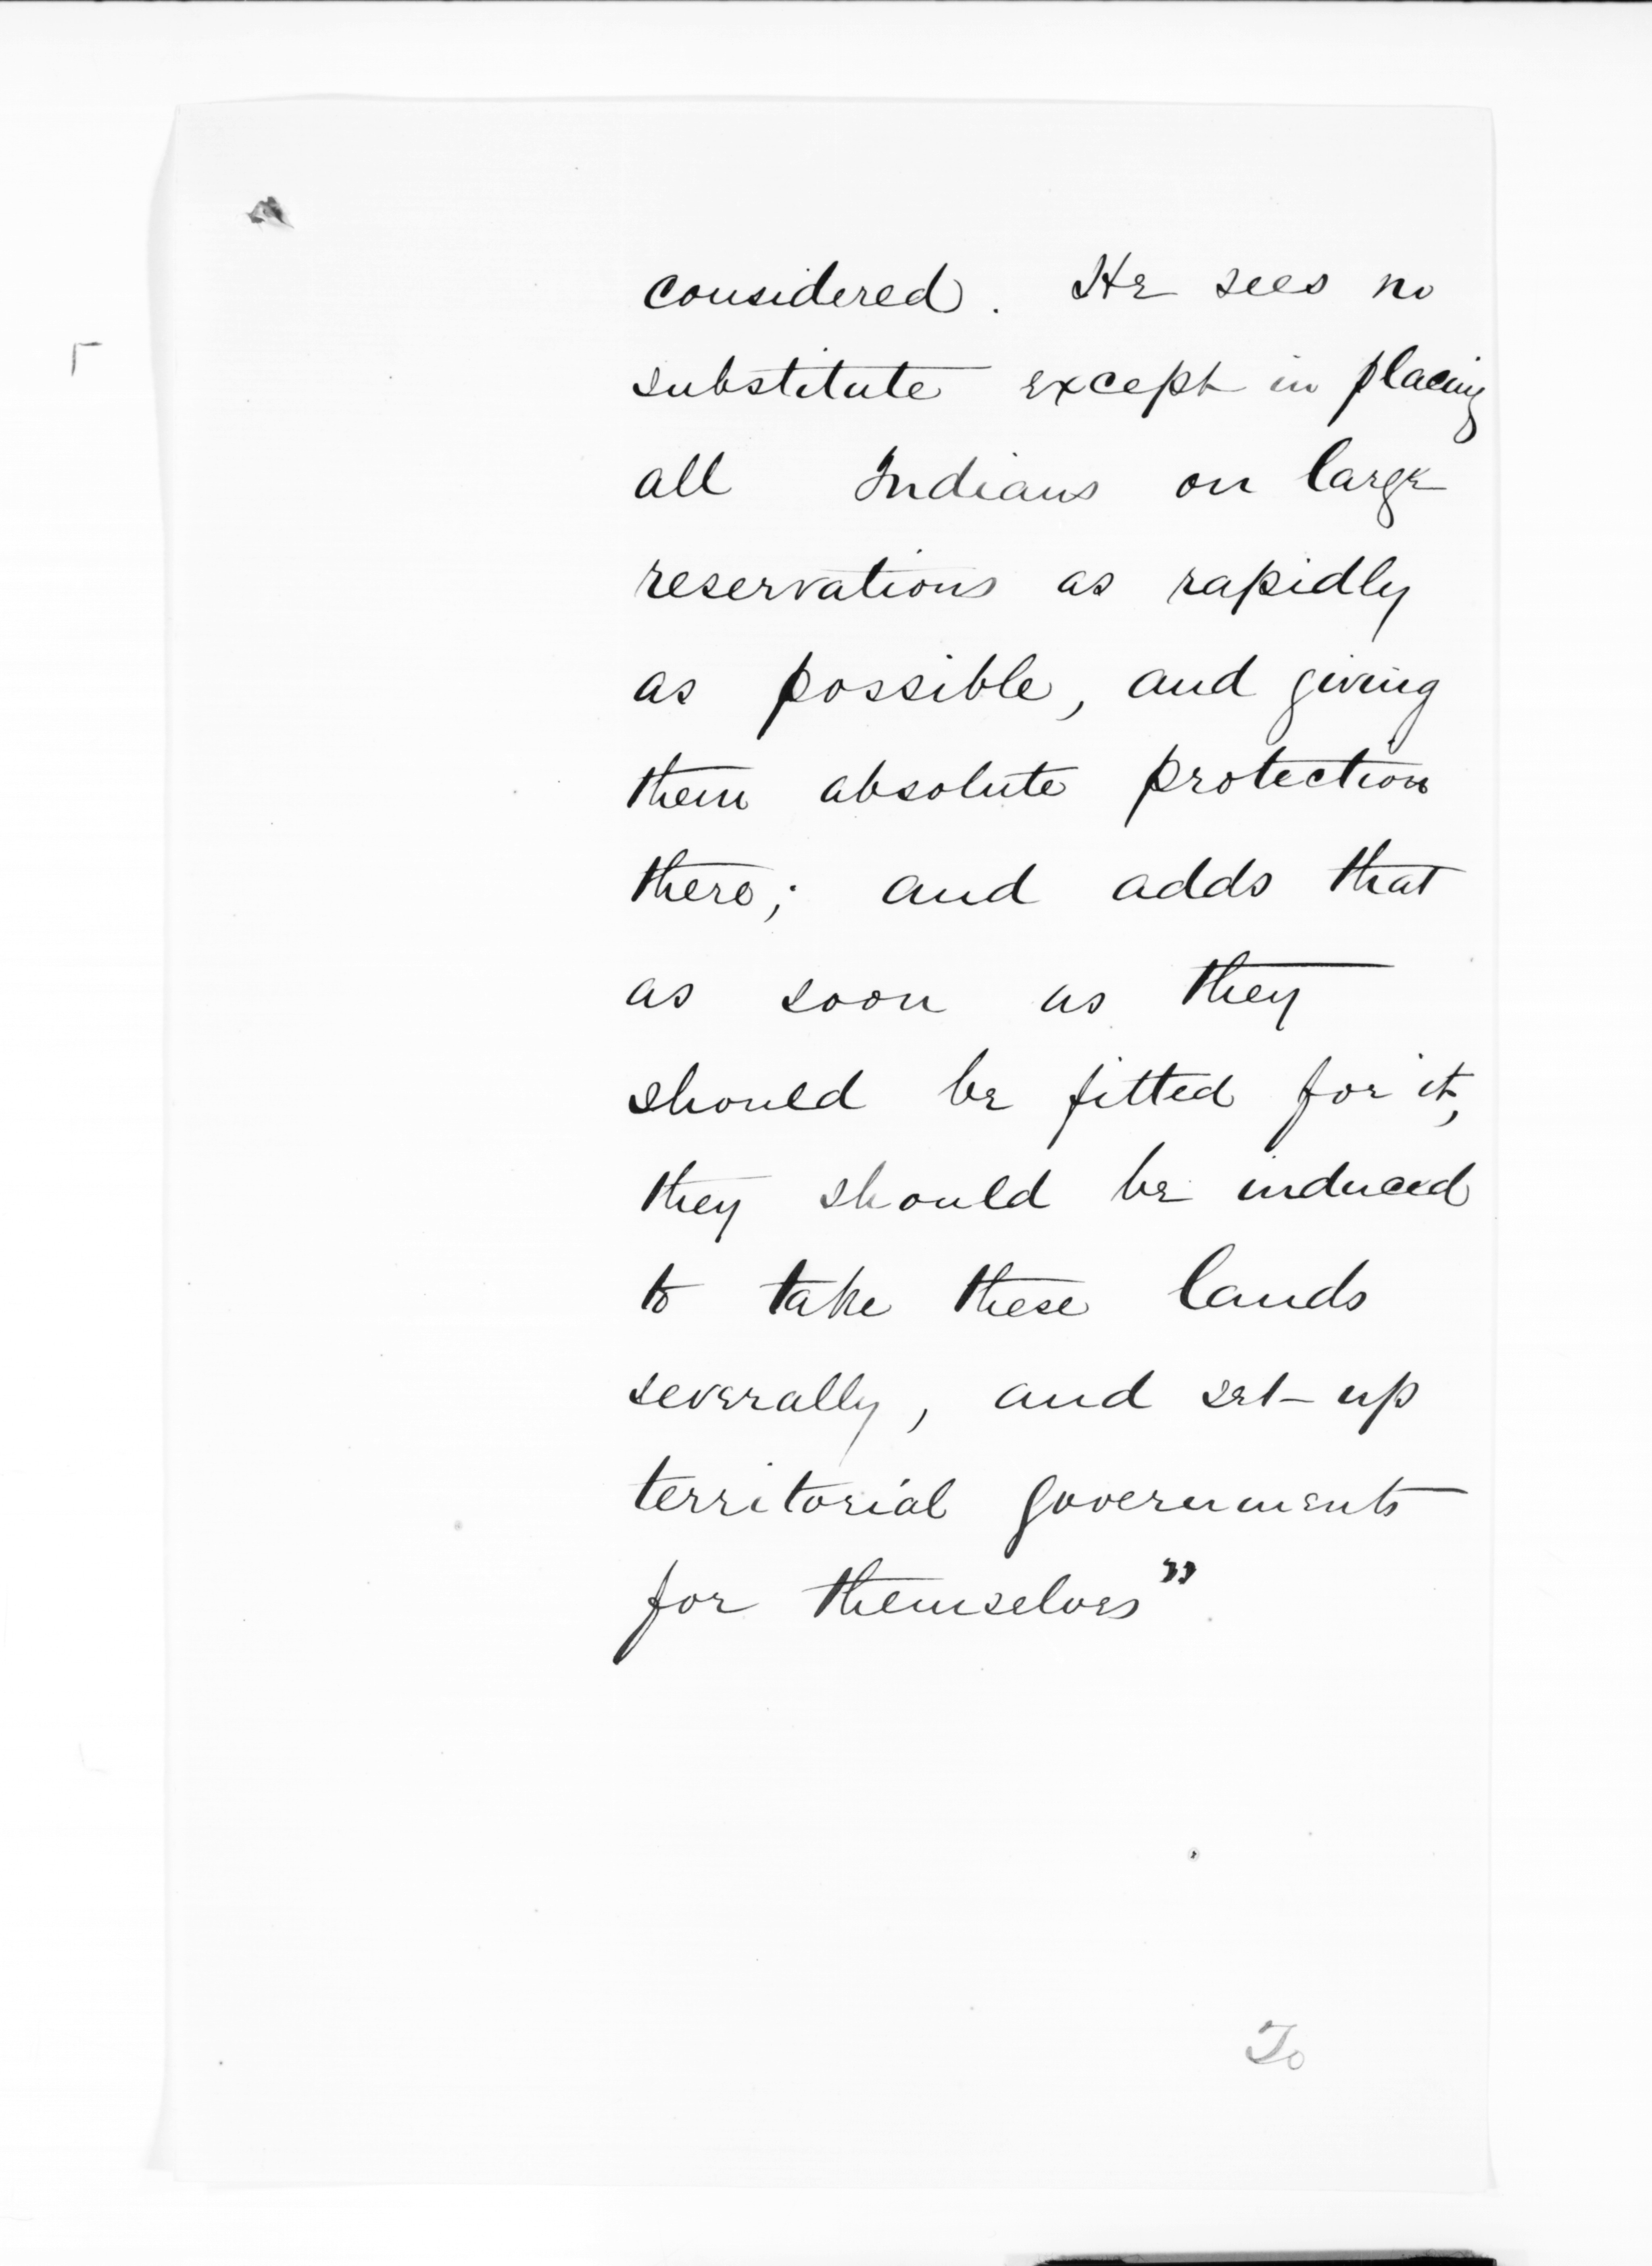 considered. He sees no
substitute except in placing
all Indians on large
reservations as rapidly
as possible, and giving
them absolute protection
there; and adds that
as soon as they
should be fitted for it,
they should be induced
to take these lands
severally, and set up
territorial governments
for themselves”
To